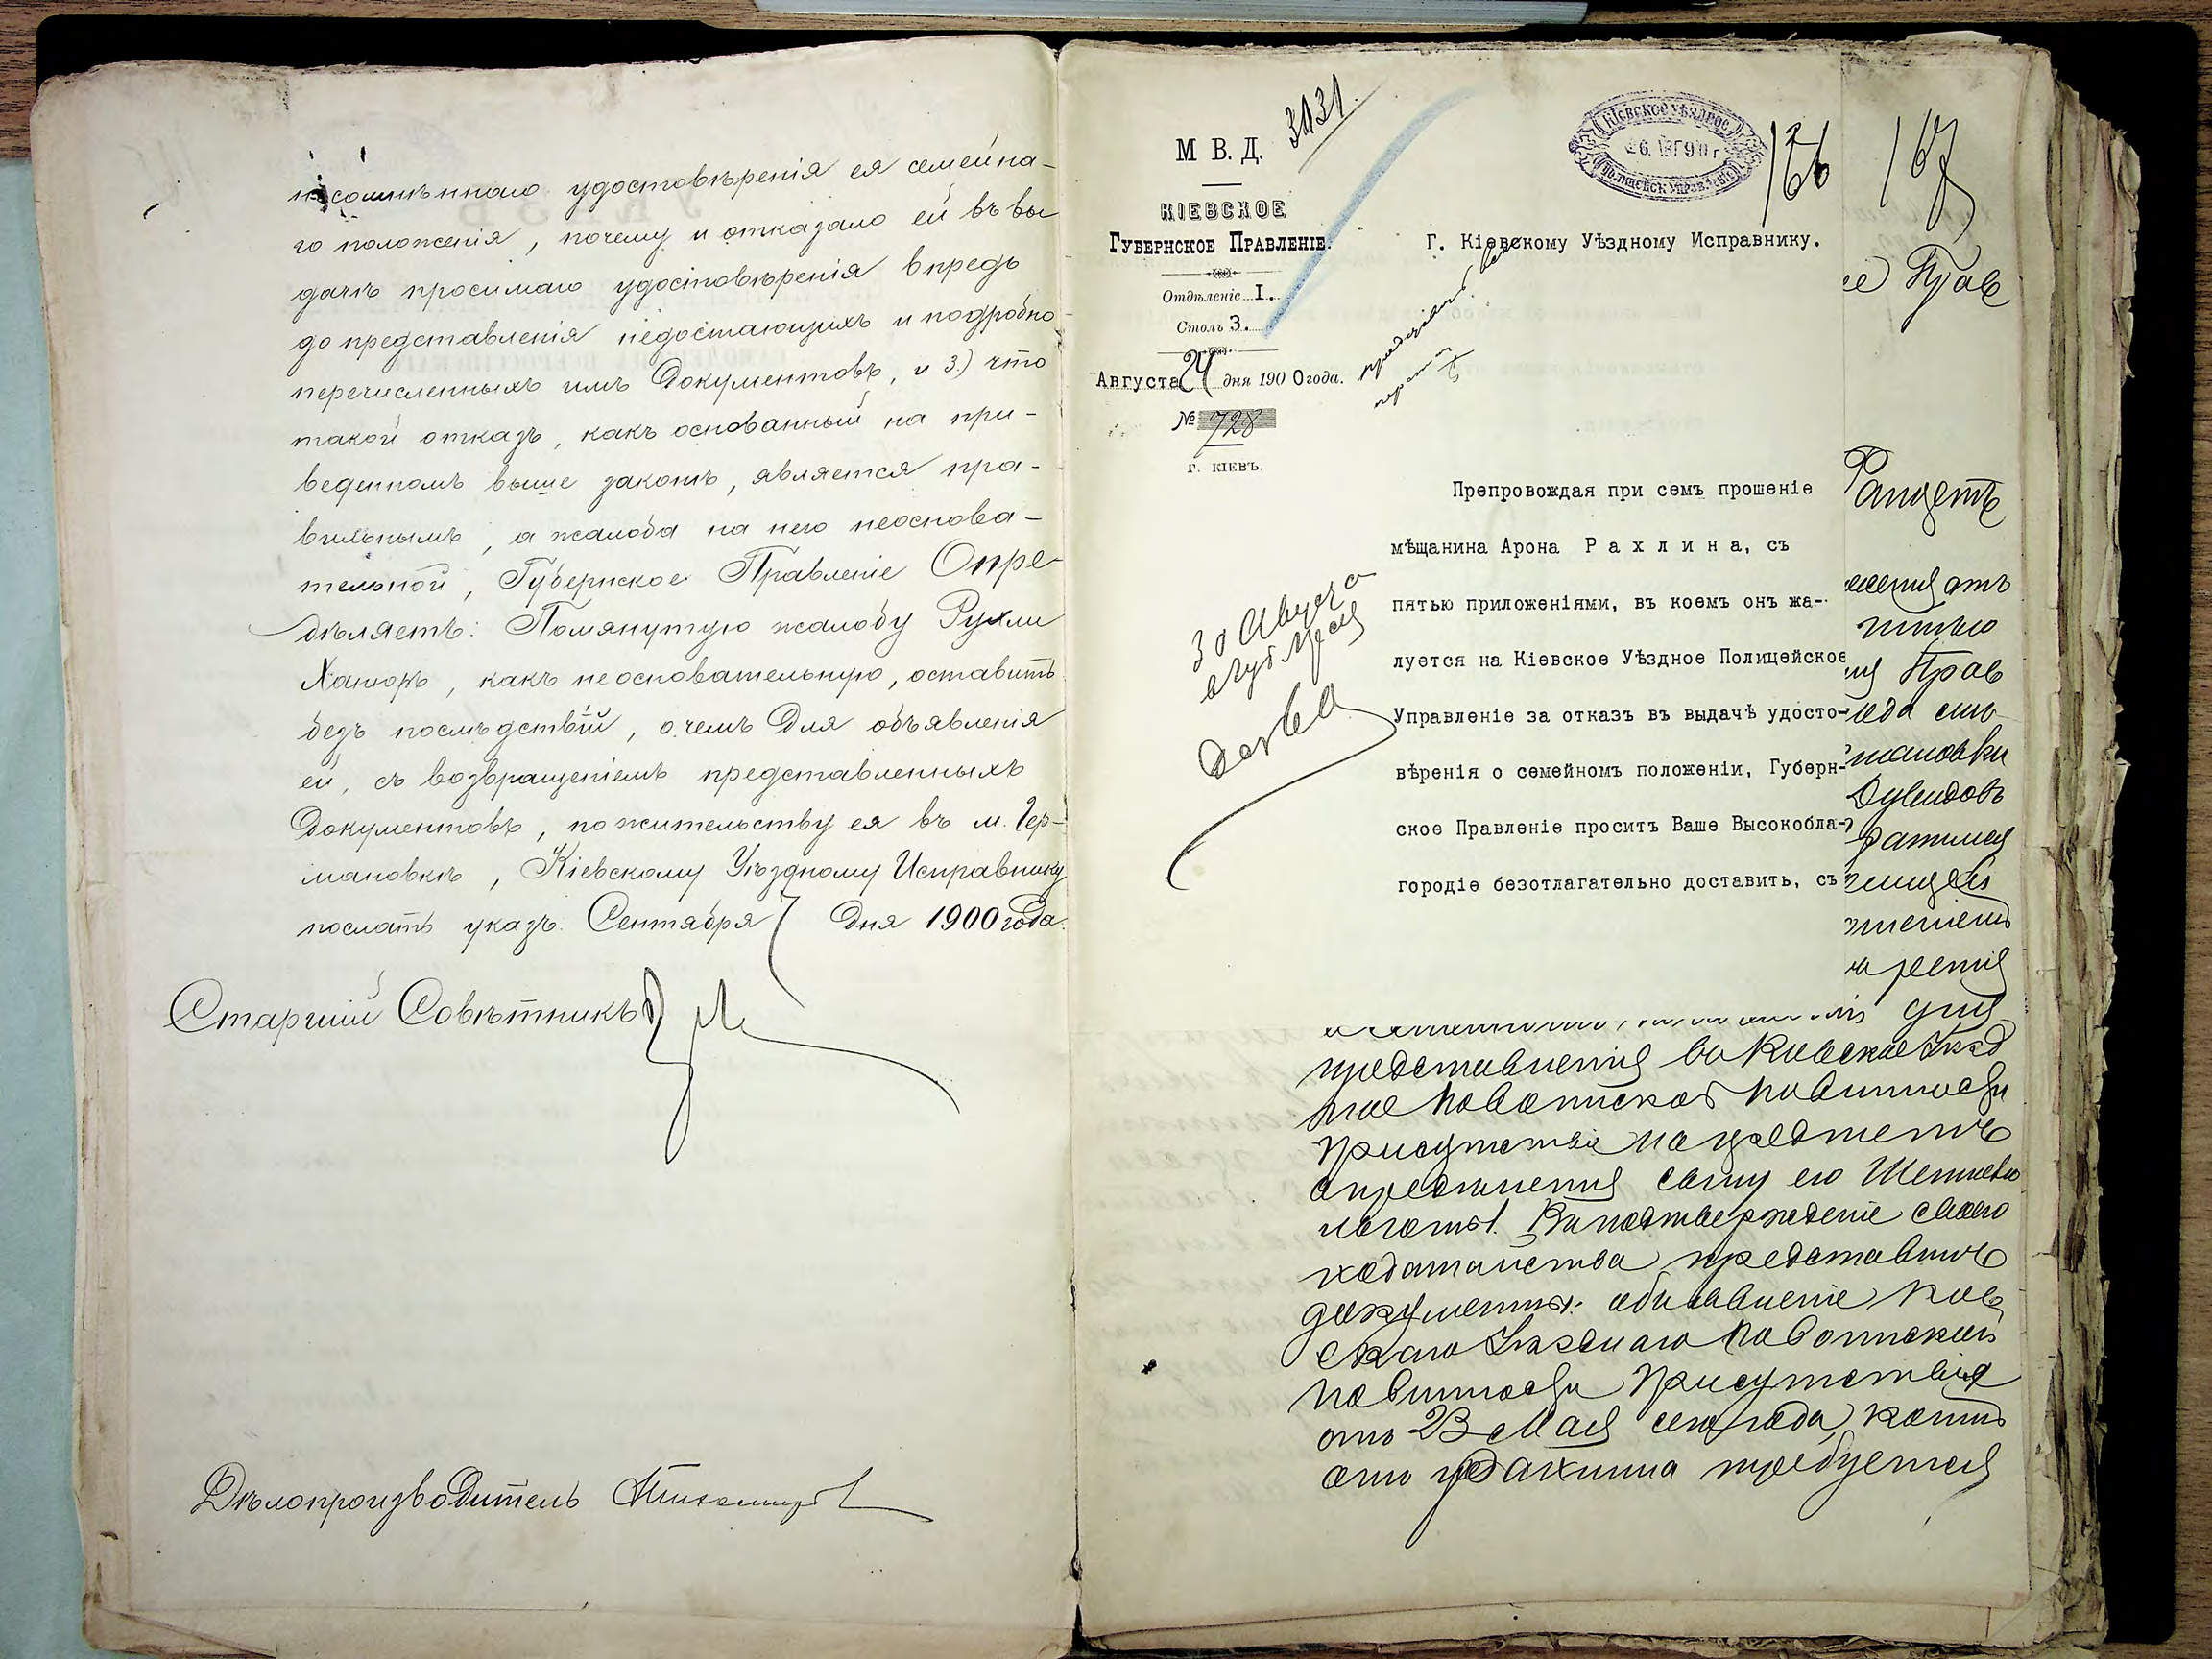 несомнѣннаго удостовѣренія ея семейна-
го положенія, почему и отказало ей въ вы
дачѣ просимаго удостовѣренія впредь
до представленія недостающихъ и подробно
перечисленныхъ имъ документовъ, и 3.) что
такой отказъ, какъ основанный на при-
веденномъ выше законѣ, является пра-
вильнымъ, а жалоба на него неоснова-
тельной, Губернское Правленіе Опре-
дѣляетъ: Помянутую жалобу Рухли
какъ неосновательную, оставить
безъ послѣдствій, о чемъ для объявленія
ей, съ возвращеніемъ представленныхъ
документовъ, по жительству ея въ м. Гер-
мановкѣ, Кіевскому Уѣздному Исправнику
послать указъ. Сентября 7 дня 1900 года.
Старшій Совѣтникъ
Дѣлопроизводитель
3131
М В. Д.
КІЕВСКОЕ
ГУБЕРНСКОЕ ПРАВЛЕНІЕ.
Отдѣленіе I.
Столъ 3.
Августа 24 дня 1900 года.
№ 728
Г. КІЕВЪ.
КІЕВСКОЕ УѢЗДНОЕ
ПОЛИЦЕЙСК УПРАВЛЕНІЕ
166
Г. Кіевскому Уѣздному Исправнику.
30 Августа
Препровождая при семъ прошеніе
мѣщанина Арона Рахлина, съ
пятью приложеніями, въ коемъ онъ жа-
луется на Кіевское Уѣздное Полицейское
Управленіе за отказъ въ выдачѣ удосто-
вѣренія о семейномъ положеніи, Губерн-
ское Правленіе проситъ Ваше Высокобла-
городіе безотлагательно доставить, съ
167
Прав
Прав
мановки
представленія въ Киевское Уѣзд
ное по воинской повинности
Присутствіе на предметъ
опредѣленія сыну его
льготы. Въ подтвержденіе своего
ходатайства представилъ
документы: объявленіе Киев
скаго Уѣзднаго по воинской
повинности Присутствія
отъ 23 Мая сего года, коимъ
отъ Рахлина требуется